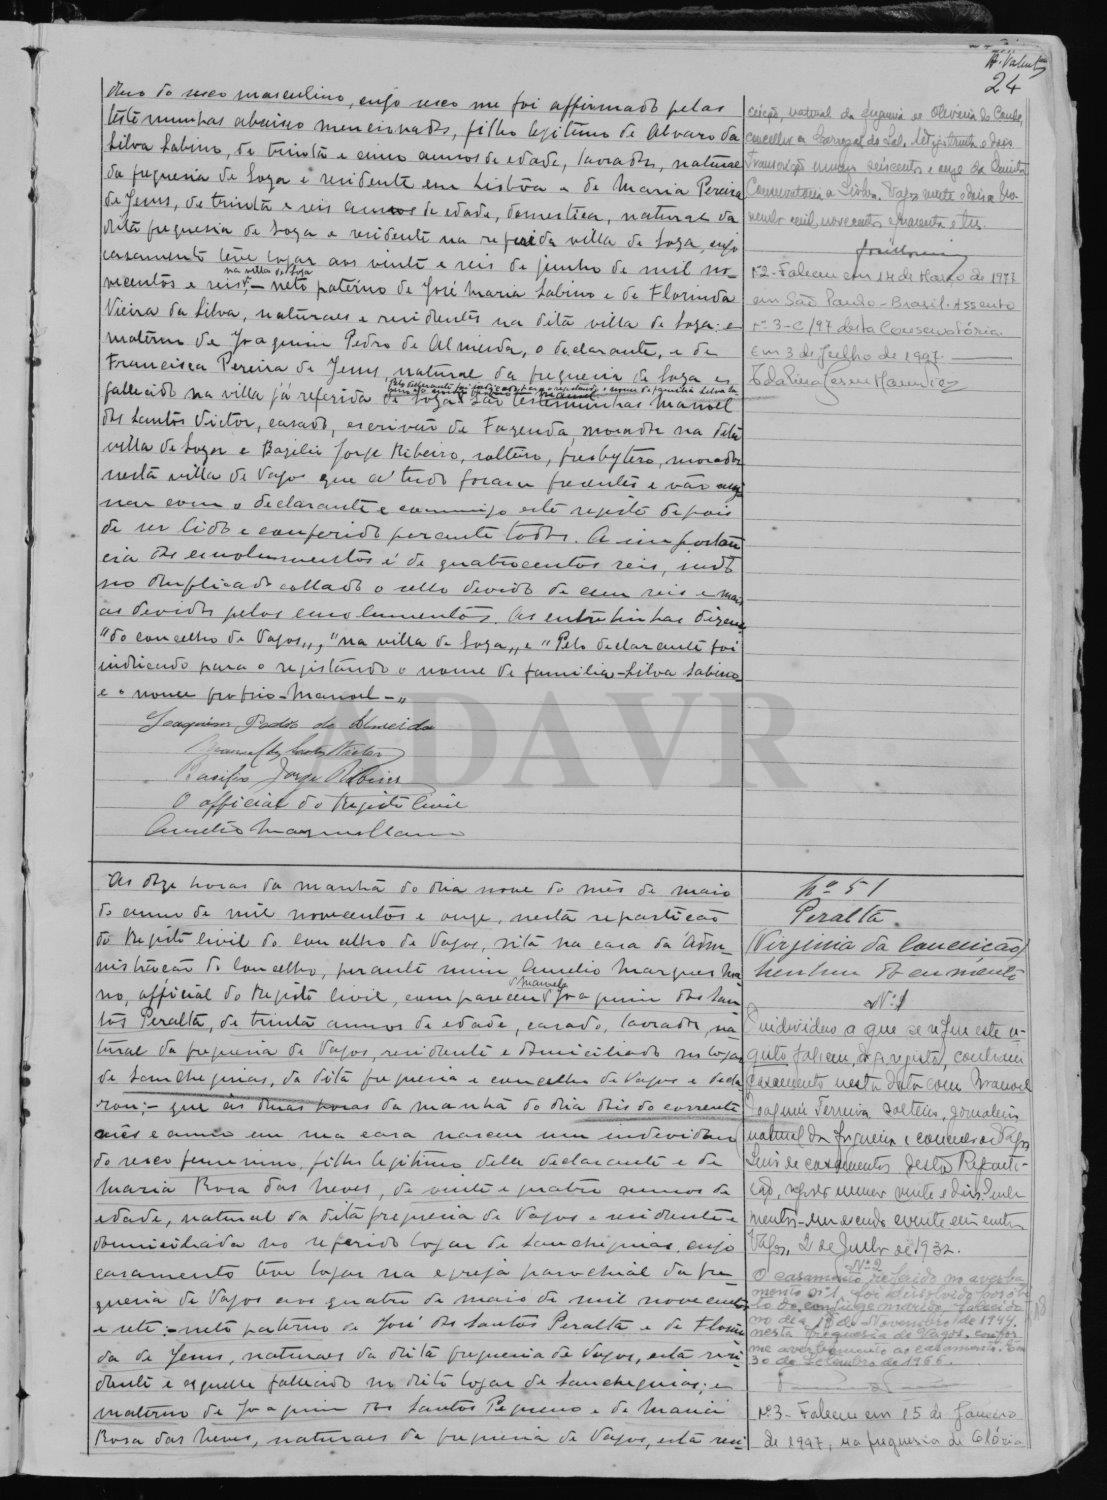 A. Valente
24
do sexo masculino, cujo sexo me foi affirmado pelas
testemunhas abaixo mencionadas, filho legitimo de Alvaro da
Silva Sabino, de trinta e cinco annos de edade, lavrador, natural
da freguesia de Soza e residente em Lisbôa e de Maria Pereira
de Jesus, de trinta e seis annos de edade, domestica, natural da
dita freguesia de Soza e residente na referida villa de Soza, cujo
casamento teve logar aos vinte e seis de junho de mil no-
na villa de Soza
vecentos e seis; - neto paterno de José Maria Sabino e de Florinda
Vieira da Silva, naturaes e residentes na dita villa de Soza: e
materno de Joaquim Pedro de Almeida, o declarante, e de
Francisca Pereira de Jesus, natural da freguesia de Soza e
Pelo declarante foi indicado para o registando o nome de familia Silva Sa-
fallecido na villa já referida de Soza. São testemunhas Manoel
dos Santos Victor, casado, escrivão de Fazenda, morador na dita
villa de Soza e Bazilio Jorge Ribeiro, solteiro, presbytero, morador
nesta villa de Vagos que a tudo foram presentes e vão assi
nar com o declarante e commigo este registo depois
de ser lido e conferido perante todos. A importan
cia dos emolumentos é de quatrocentos reis, indo
no duplicado collado o sello devido de cem reis e mais
os devidos pelos emolumentos. As entrelinhas dizem
"do concelho de Vagos", "na villa de Soza" e "Pelo declarante foi
indicado para o registando o nome de familia - Silva Sabino
e o nome proprio - Manoel - "
Joaquim Pedro de Almeida
Manoel dos Santos Victor
Basilio Jorge Ribeiro
O official do Registo Civil
Aurelio Marques Mano
ceição, natural da freguesia de Oliveira do Conde,
concelho de Carregal do Sal.
Transcrição numero seiscentos e onze da Quinta
Conservatoria de Lisboa. Vagos vinte e dois de No-
vembro mil novecentos e quarenta e tres.
Nº2 - Faleceu em 14 de Março de 1997
em São Paulo - Brasil. Assento
nº 3-C/97 desta Conservatória.
Em 3 de Julho de 1997.
ADAVR
Ás doze horas da manhã do dia nove do mês de maio
do anno de mil novecentos e onze, nesta repartição
do Registo Civil do Concelho de Vagos, sita na casa da Admi-
nistração do Concelho, perante mim Aurelio Marques Ma-
Manoel
no, official do Registo Civil, compareceu Joaquim dos San
tos Peralta, de trinta annos de edade, casado, lavrador, na
tural da freguesia de Vagos, residente e domiciliado no logar
de Sanchequias, da dita freguesia e concelho de Vagos e decla
rou: - que ás duas horas da manhã do dia dois do corrente
mês e anno em sua casa nasceu um individuo
do sexo feminino, filha legitima delle declarante e de
Maria Rosa das Neves, de vinte e quatro annos de
edade, natural da dita freguesia de Vagos e residente e
domiciliada no referido logar de Sanchequias, cujo
casamento teve logar na egreja parochial da fre
guesia de Vagos aos quatro de maio de mil novecentos
e sete: - neta paterna de José dos Santos Peralta e de Florin
da de Jesus, naturaes da dita freguesia de Vagos, esta resi
dente e aquelle fallecido no dito logar de Sanchequias; e
materna de Joaquim dos Santos Pequeno e de Maria
Rosa das Neves, naturaes da freguesia de Vagos, esta resi-
Nº 51
Peralta
(Virginia da Conceição)
Nenhum documento
Nº1
O individuo a que se refere este re-
gisto
casamento nesta data com Manoel
Joaquim Ferreira, solteiro, jornaleiro
natural da freguesia e concelho de Vagos
Livro de casamentos desta Reparti-
ção, registo numero vinte e dois.
Vagos, 2 de Julho de 1932.
Nº2
O casamento referido no averba-
mento nº1, foi dissolvido por óbi-
to do conjuge marido, falecido
no dia 19 de Novembro de 1949,
nesta freguesia de Vagos, confor-
me averbamento ao casamento. Em
30 de Setembro de 1966.
Nº3 - Faleceu em 15 de Janeiro
de 1997, na freguesia de Glória